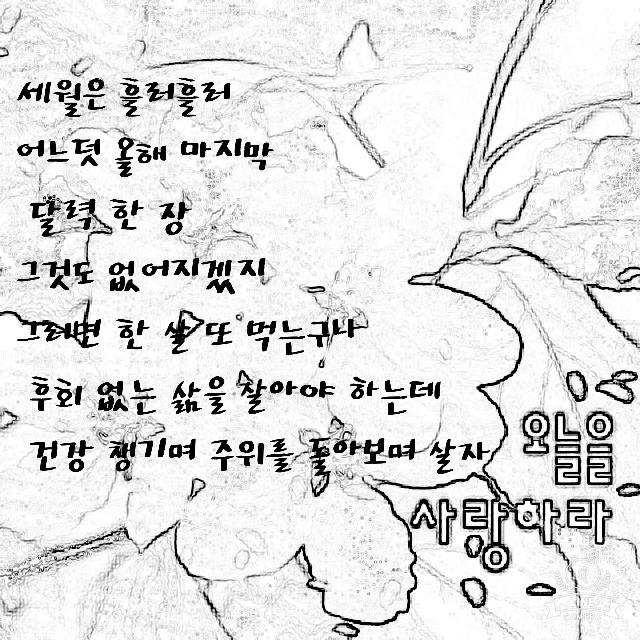 세월은 흘러흘러
어느덧 올해 마지막
달력 한 장
그것도 없어지겠지
그러면 한 살 또 먹는구나
후회 없는 삶을 살아야 하는데
건강 챙기며 주위를 돌아보며 살자
오늘을
사랑하라